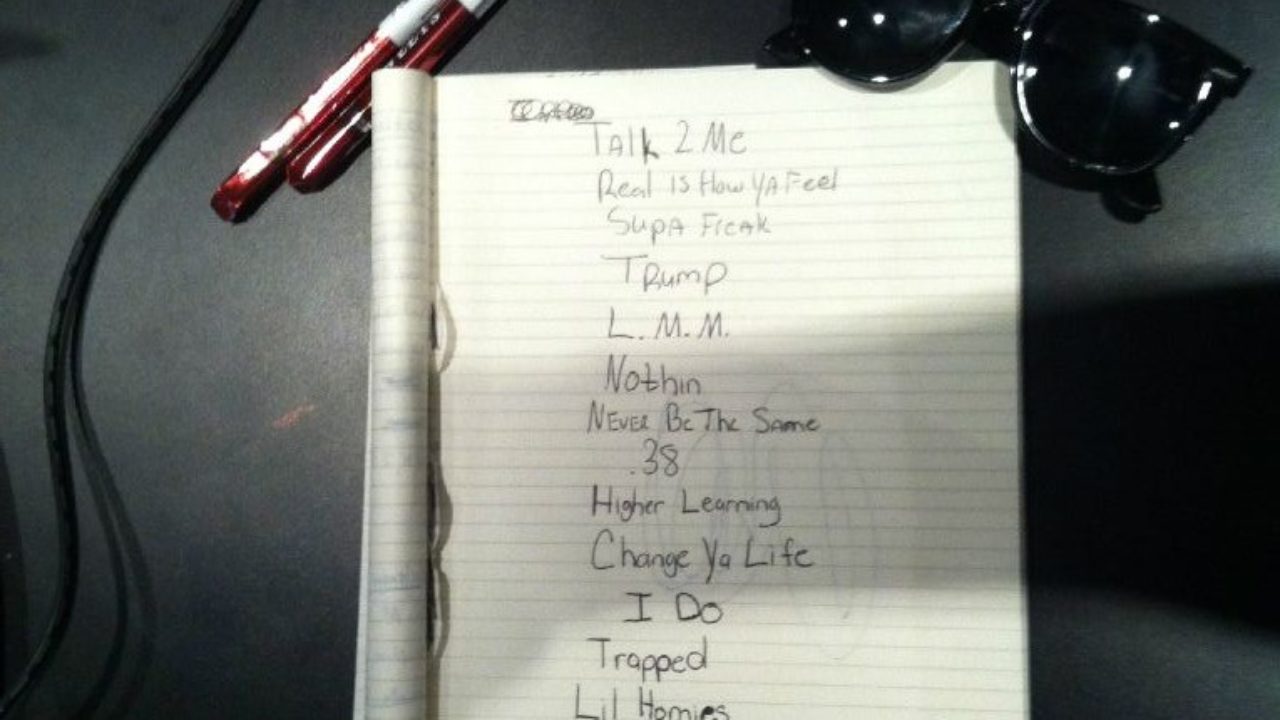 Talk 2 Me
Real Is How Ya Feel
Supa Freak
Trump
L. M. M.
Nothin
Never Be The Same
.38
Higher Learning
Change Ya Life
I Do
Trapped
Lil Homies